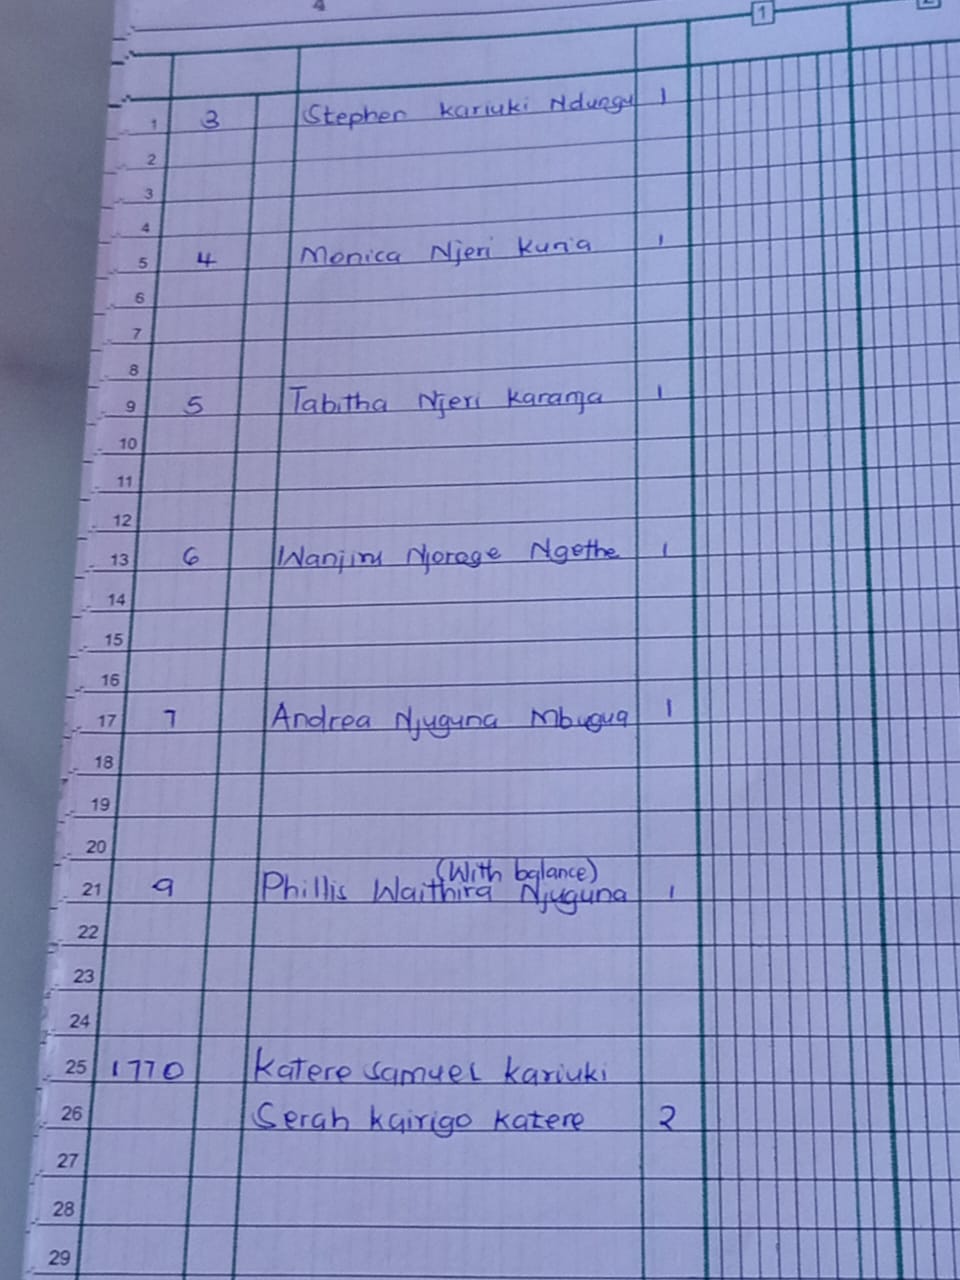 4
1
1 3 Stephen Kariuki Ndungu 1
2
3
4
5 4 Monica Njeri Kuria 1
6
7
8
9 5 Tabitha Njeri Karanja 1
10
11
12
13 6 Wanjiru Njoroge Ngethe 1
14
15
16
17 7 Andrea Njuguna Mbugua 1
18
19
20
(With balance)
21 9 Phillis Waithira Njuguna 1
22
23
24
25 1770 Katere Samuel Kariuki
26 Serah Kairigo Katere 2
27
28
29